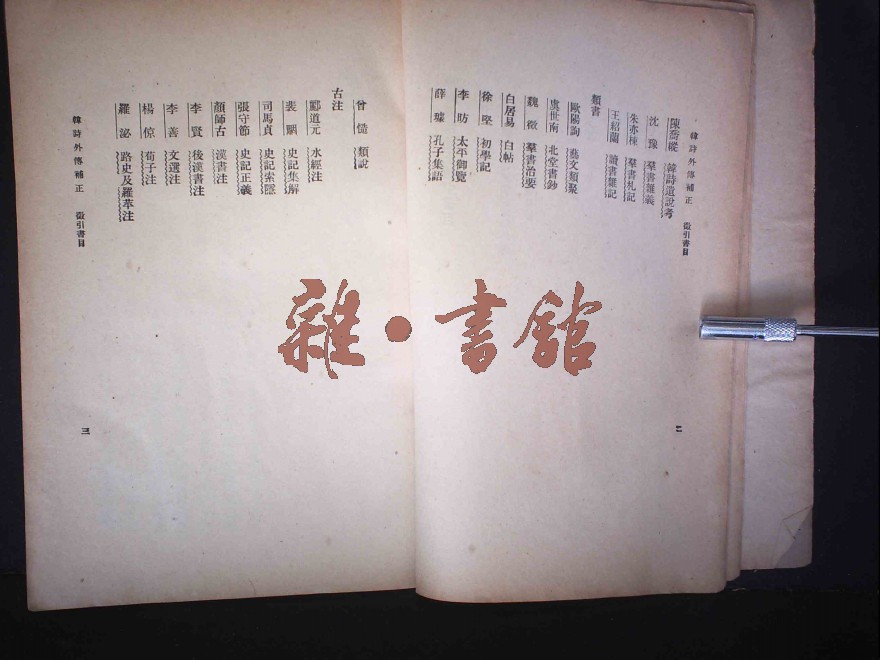 韓詩外傳補正 徵引書目
陳喬樅 韓詩遺說考
沈豫 羣書雜義
朱亦棟 羣書札記
王紹蘭 讀書雜記
類書
歐陽詢 藝文類聚
虞世南 北堂書鈔
魏徵 羣書治要
白居易 白帖
徐堅 初學記
李昉 太平御覽
薛據 孔子集語
二
曾慥 類說
古注
酈道元 水經注
裴駰 史記集解
司馬貞 史記索隱
張守節 史記正義
顏師古 漢書注
李賢 後漢書注
李善 文選注
楊倞 荀子注
羅泌 路史及羅苹注
韓詩外傳補正 徵引書目
三
雜·書館